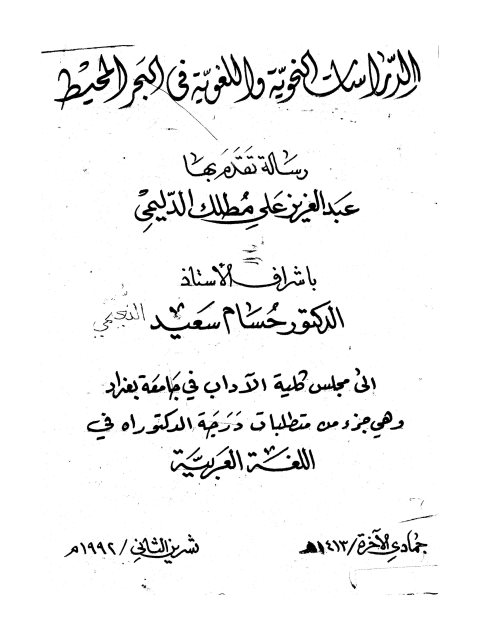 الدراسات النحوية واللغوية في البحر المحيط
رسالة تقدم بها
عبد العزيز علي مطلك الدليمي
باشراف الأستاذ
الدكتور حسام سعيد النعيمي
الى مجلس كلية الآداب في جامعة بغداد
وهي جزء من متطلبات درجة الدكتوراه في
اللغة العربية
جمادي الآخرة / ١٤١٣هـ
تشرين الثاني / ١٩٩٢م